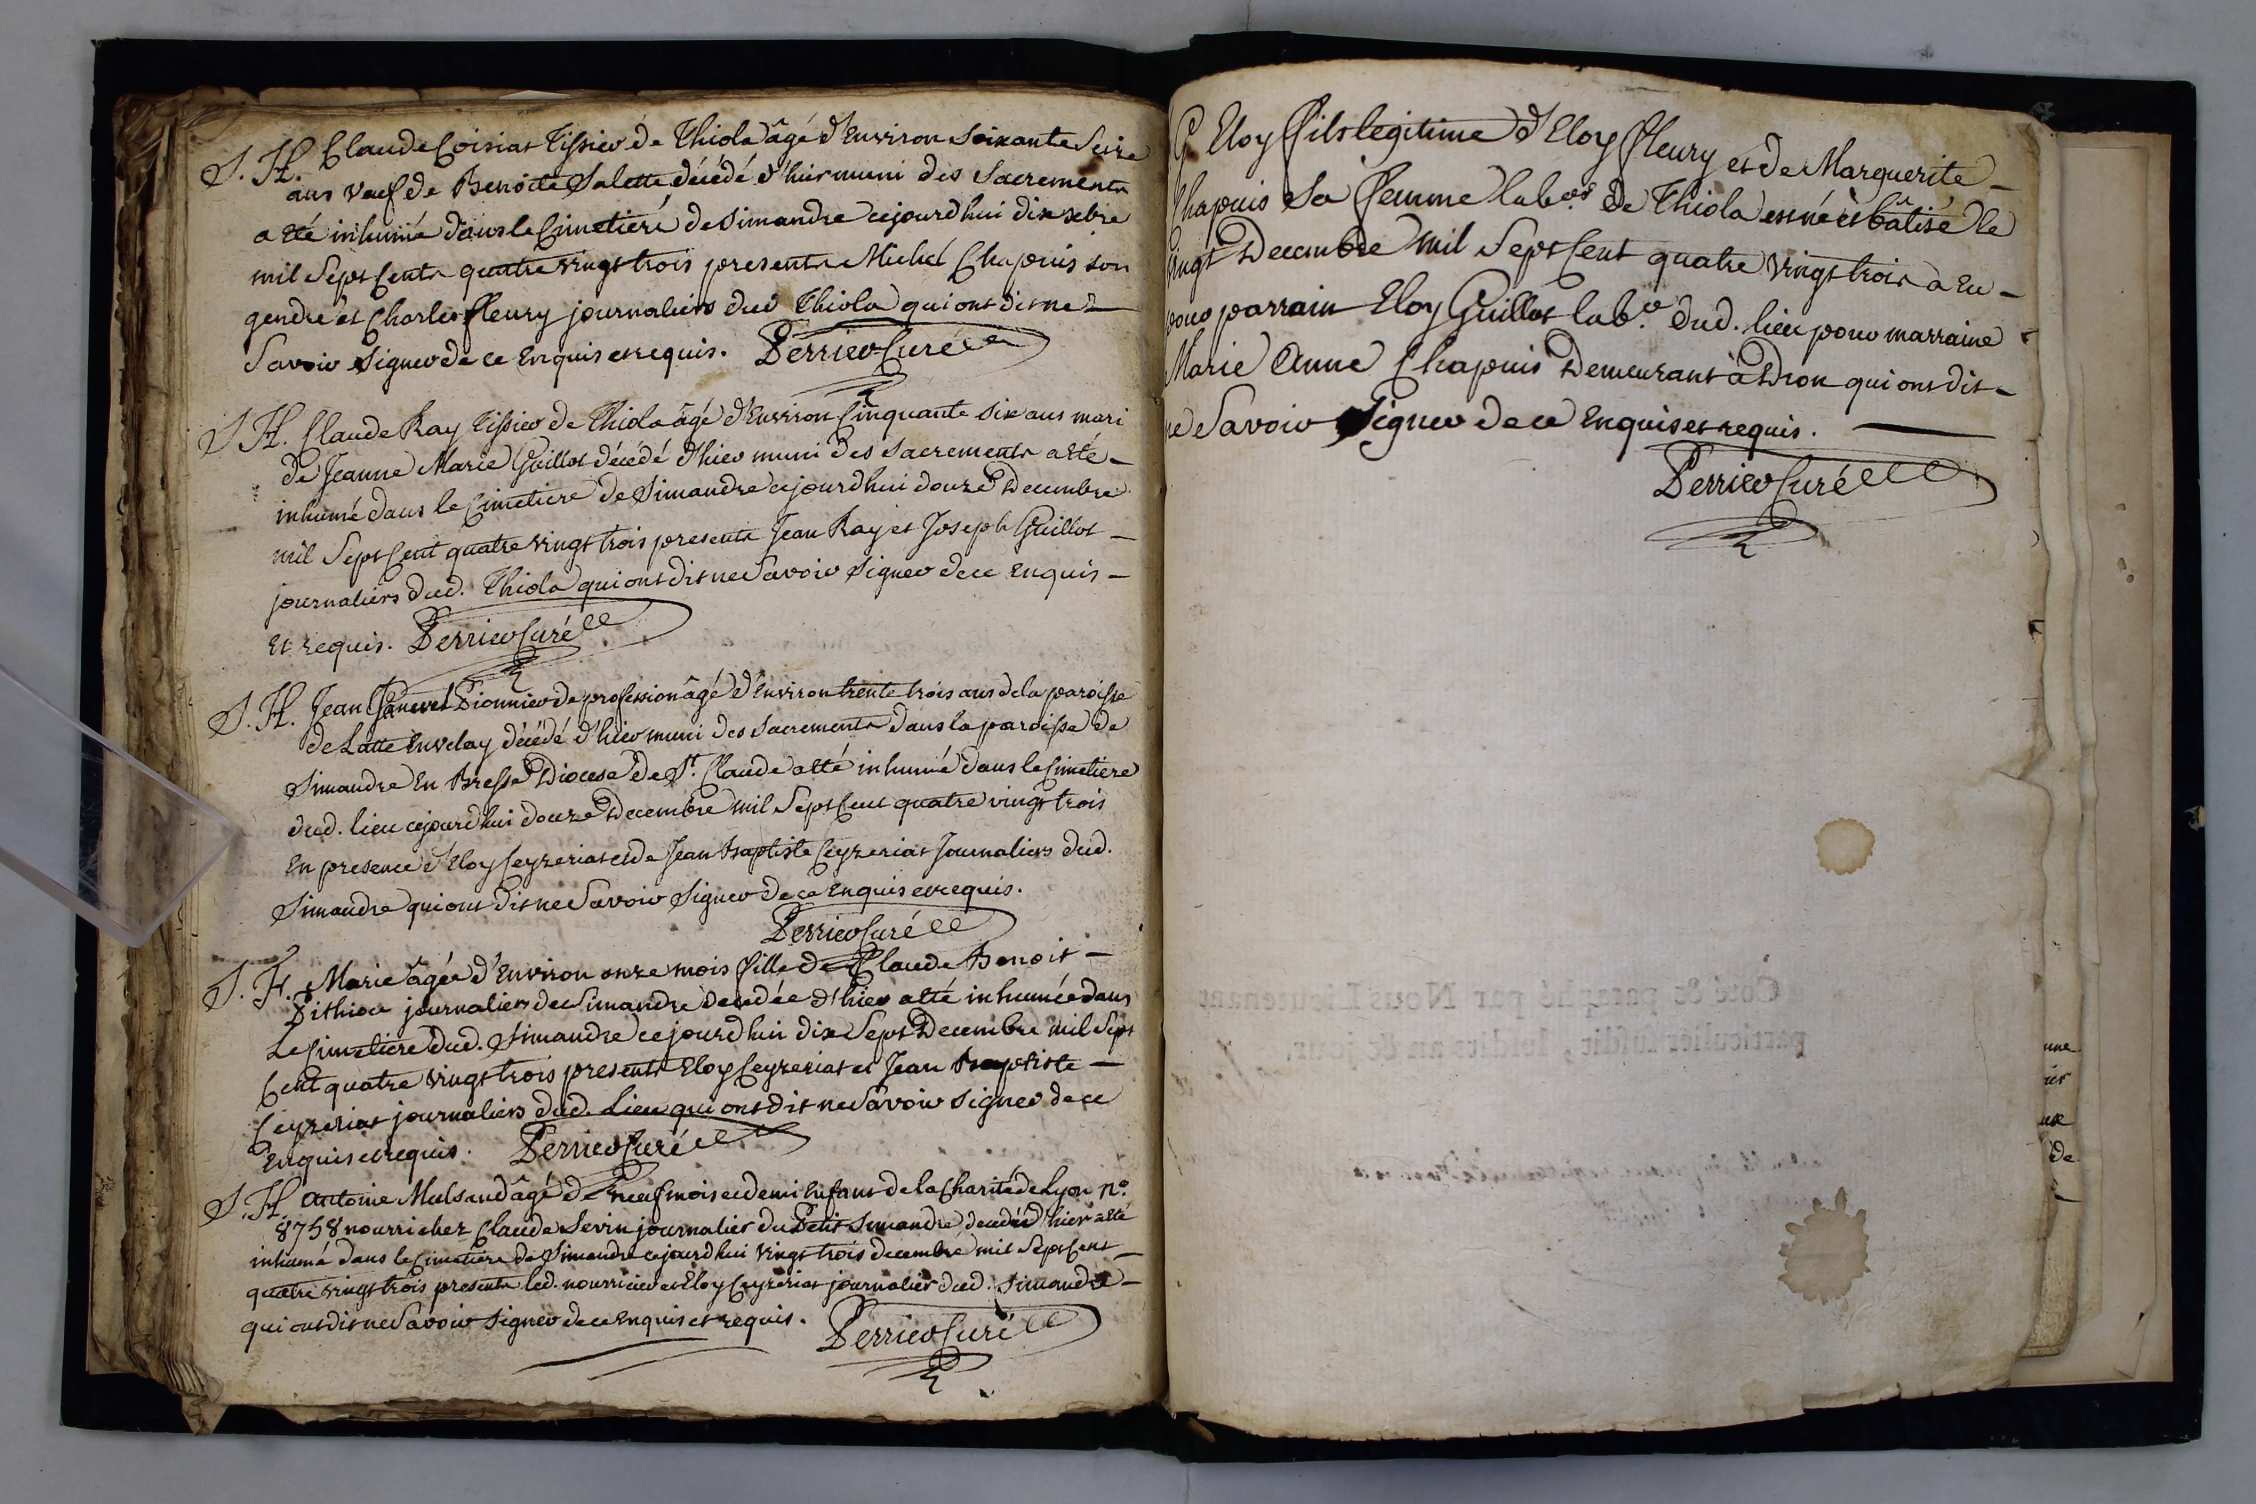 S. H. Claude Coisiat Tissier de Thiola âgé d'Environ soixante seize
ans veuf de Benoite Salette décédé d'hier muni des Sacrements
a été inhumé dans le Cimetiere de Simandre cejourd'hui dix xbre
mil Sept Cents quatre vingt trois presents Michel Chapuis son
gendre et Charles fleury journaliers dud Thiola qui ont dit ne
Savoir Signer de ce Enquis et requis. Perrier Curé
S. H. Claude Ray Tissier de Thiola âgé d'Environ Cinquante six ans mari
de Jeanne Marie Guillot décédé d'hier muni des Sacrements a été
inhumé dans le Cimetiere de Simandre cejourd'hui douze Decembre
mil Sept Cent quatre vingt trois presents Jean Ray et Joseph Guillot
journaliers dud. Thiola qui ont dit ne Savoir Signer de ce Enquis
Et requis. Perrier Curé
S. H. Jean Pionnier de profession âgé d'Environ trente trois ans de la paroisse
de En velay décédé d'hier muni des Sacrements dans la paroisse de
Simandre En Bresse Diocese de St. Claude a été inhumé dans le Cimetiere
dud. lieu cejourd'hui douze Decembre mil Sept Cent quatre vingt trois
En presence d'Eloy Ceyzeriat et de Jean Baptiste Ceyzeriat Journaliers dud.
Simandre qui ont dit ne Savoir Signer de ce Enquis et requis.
Perrier Curé
S. H. Marie âgée d'Environ onze mois fille de Claude Benoit
Pithion journalier de Simandre decedée d'hier a été inhumée dans
Le Cimetiere dud. Simandre ce jourd'hui dix Sept Decembre mil Sept
Cent quatre vingt trois presents Eloy Ceyzeriat et Jean Baptiste
Ceyzeriat journaliers dud. Lieu qui ont dit ne Savoir Signer de ce
Enquis et requis. Perrier Curé
S. H. Antoine Mulsand âgé de neuf mois et demi Enfant de la Charité de Lyon No.
8758 nourri chez Claude Sevin journalier du Petit Simandre decedé d'hier a été
inhumé dans le Cimetiere de Simandre cejourd'hui vingt trois decembre mil Sept Cent
quatre vingt trois presents led. nourricier et Eloy Ceyzeriat journalier dud. Simandre
qui ont dit ne Savoir Signer de ce Enquis et requis. Perrier Curé
Eloy fils legitime d'Eloy fleury et de Marguerite
Chapuis Sa femme labrs de Thiola est né et bâtisé le
vingt Decembre mil Sept Cent quatre vingt trois a Eu
pour parrain Eloy Guillot labr. dud. lieu pour marraine
Marie Anne Chapuis Demeurant à Dron qui ont dit
ne Savoir Signer de ce Enquis et requis.
Perrier Curé
Coté & paraphé par Nous Lieutenant
particulier susdit, susdits an & jour.